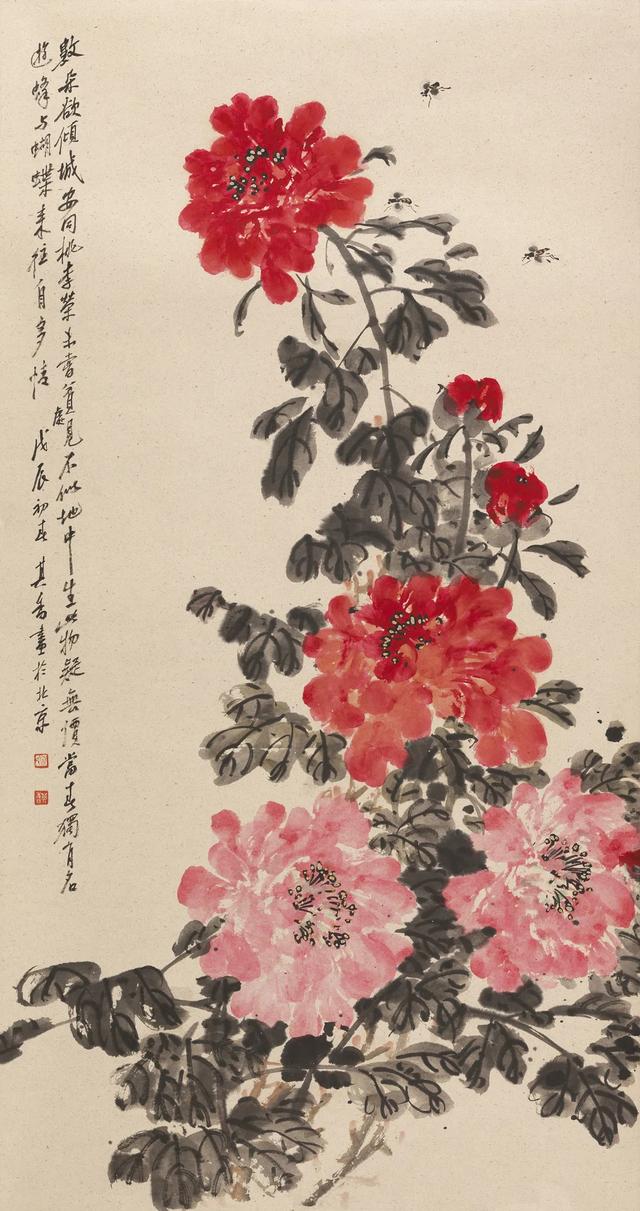 數朵欲傾城安同桃李榮未嘗貧處見不似地中生此物疑無價當春獨有名
遊蜂与蝴蝶来往自多情 戊辰初春 其 畫於北京